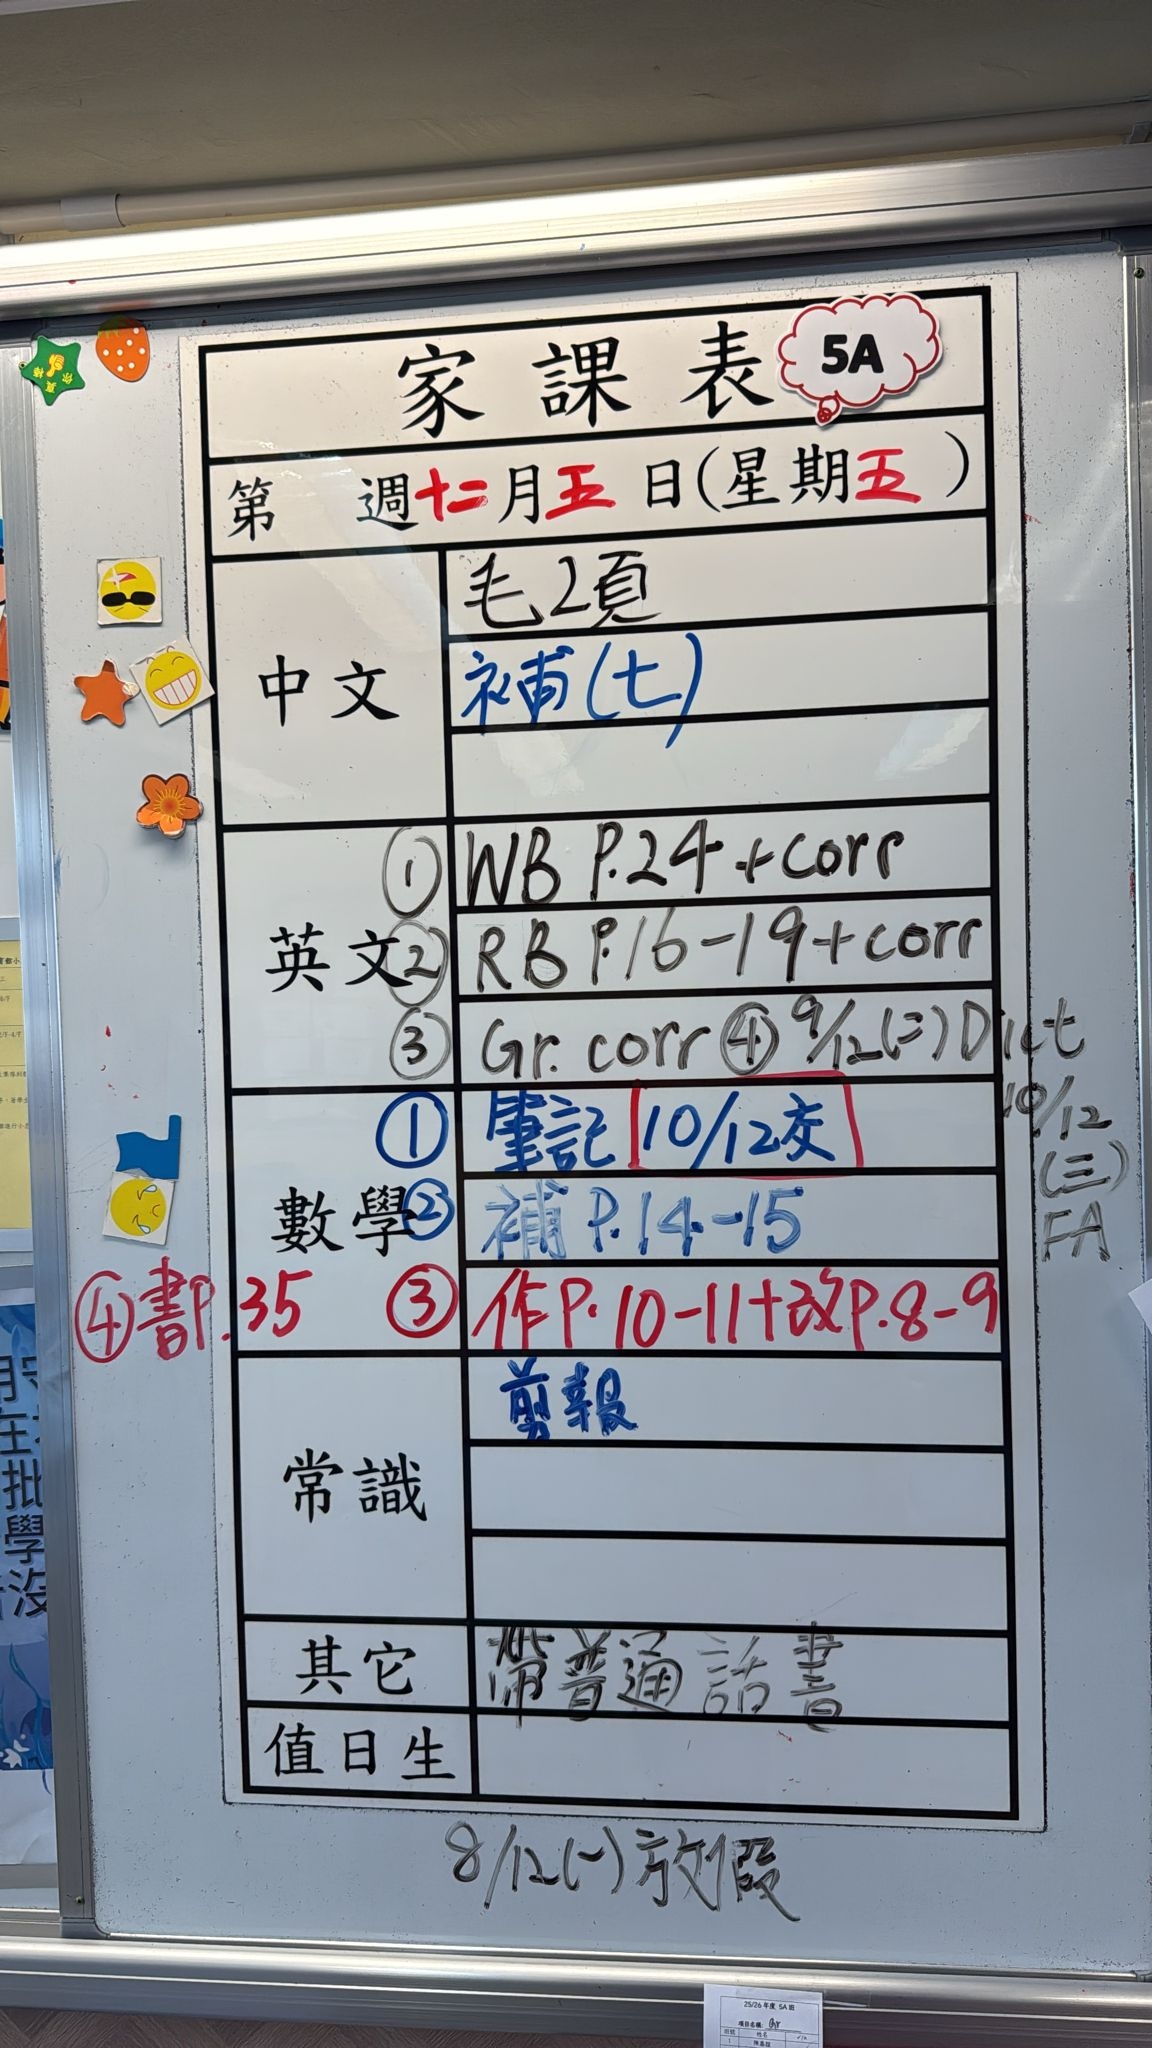 家課表
5A
第 週十二月五日(星期五)
中文
毛2頁
補(七)
英文
① WB P.24 + corr
② RB P.16-19 + corr
③ Gr. corr ④ 9/12(二) Dict
10/12
(三)
FA
數學
① 筆記 10/12交
② 補 P.14-15
③ 作P.10-11+改P.8-9
④書P.35
常識
剪報
其它
帶普通話書
值日生
8/12(一)放假
25/26年度 5A班
項目名稱: Gr
姓名